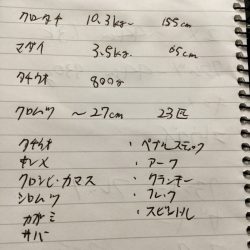 クロタチ 10.3kg 155cm
マダイ 3.5kg 65cm
タチウオ 800g
クロムツ ~27cm 23匹
タチウオ : ペブルスティック
キンメ : アーク
クロシビ・カマス : クランキー
シロムツ : フレーク
カガミ : スピンドル
サバ